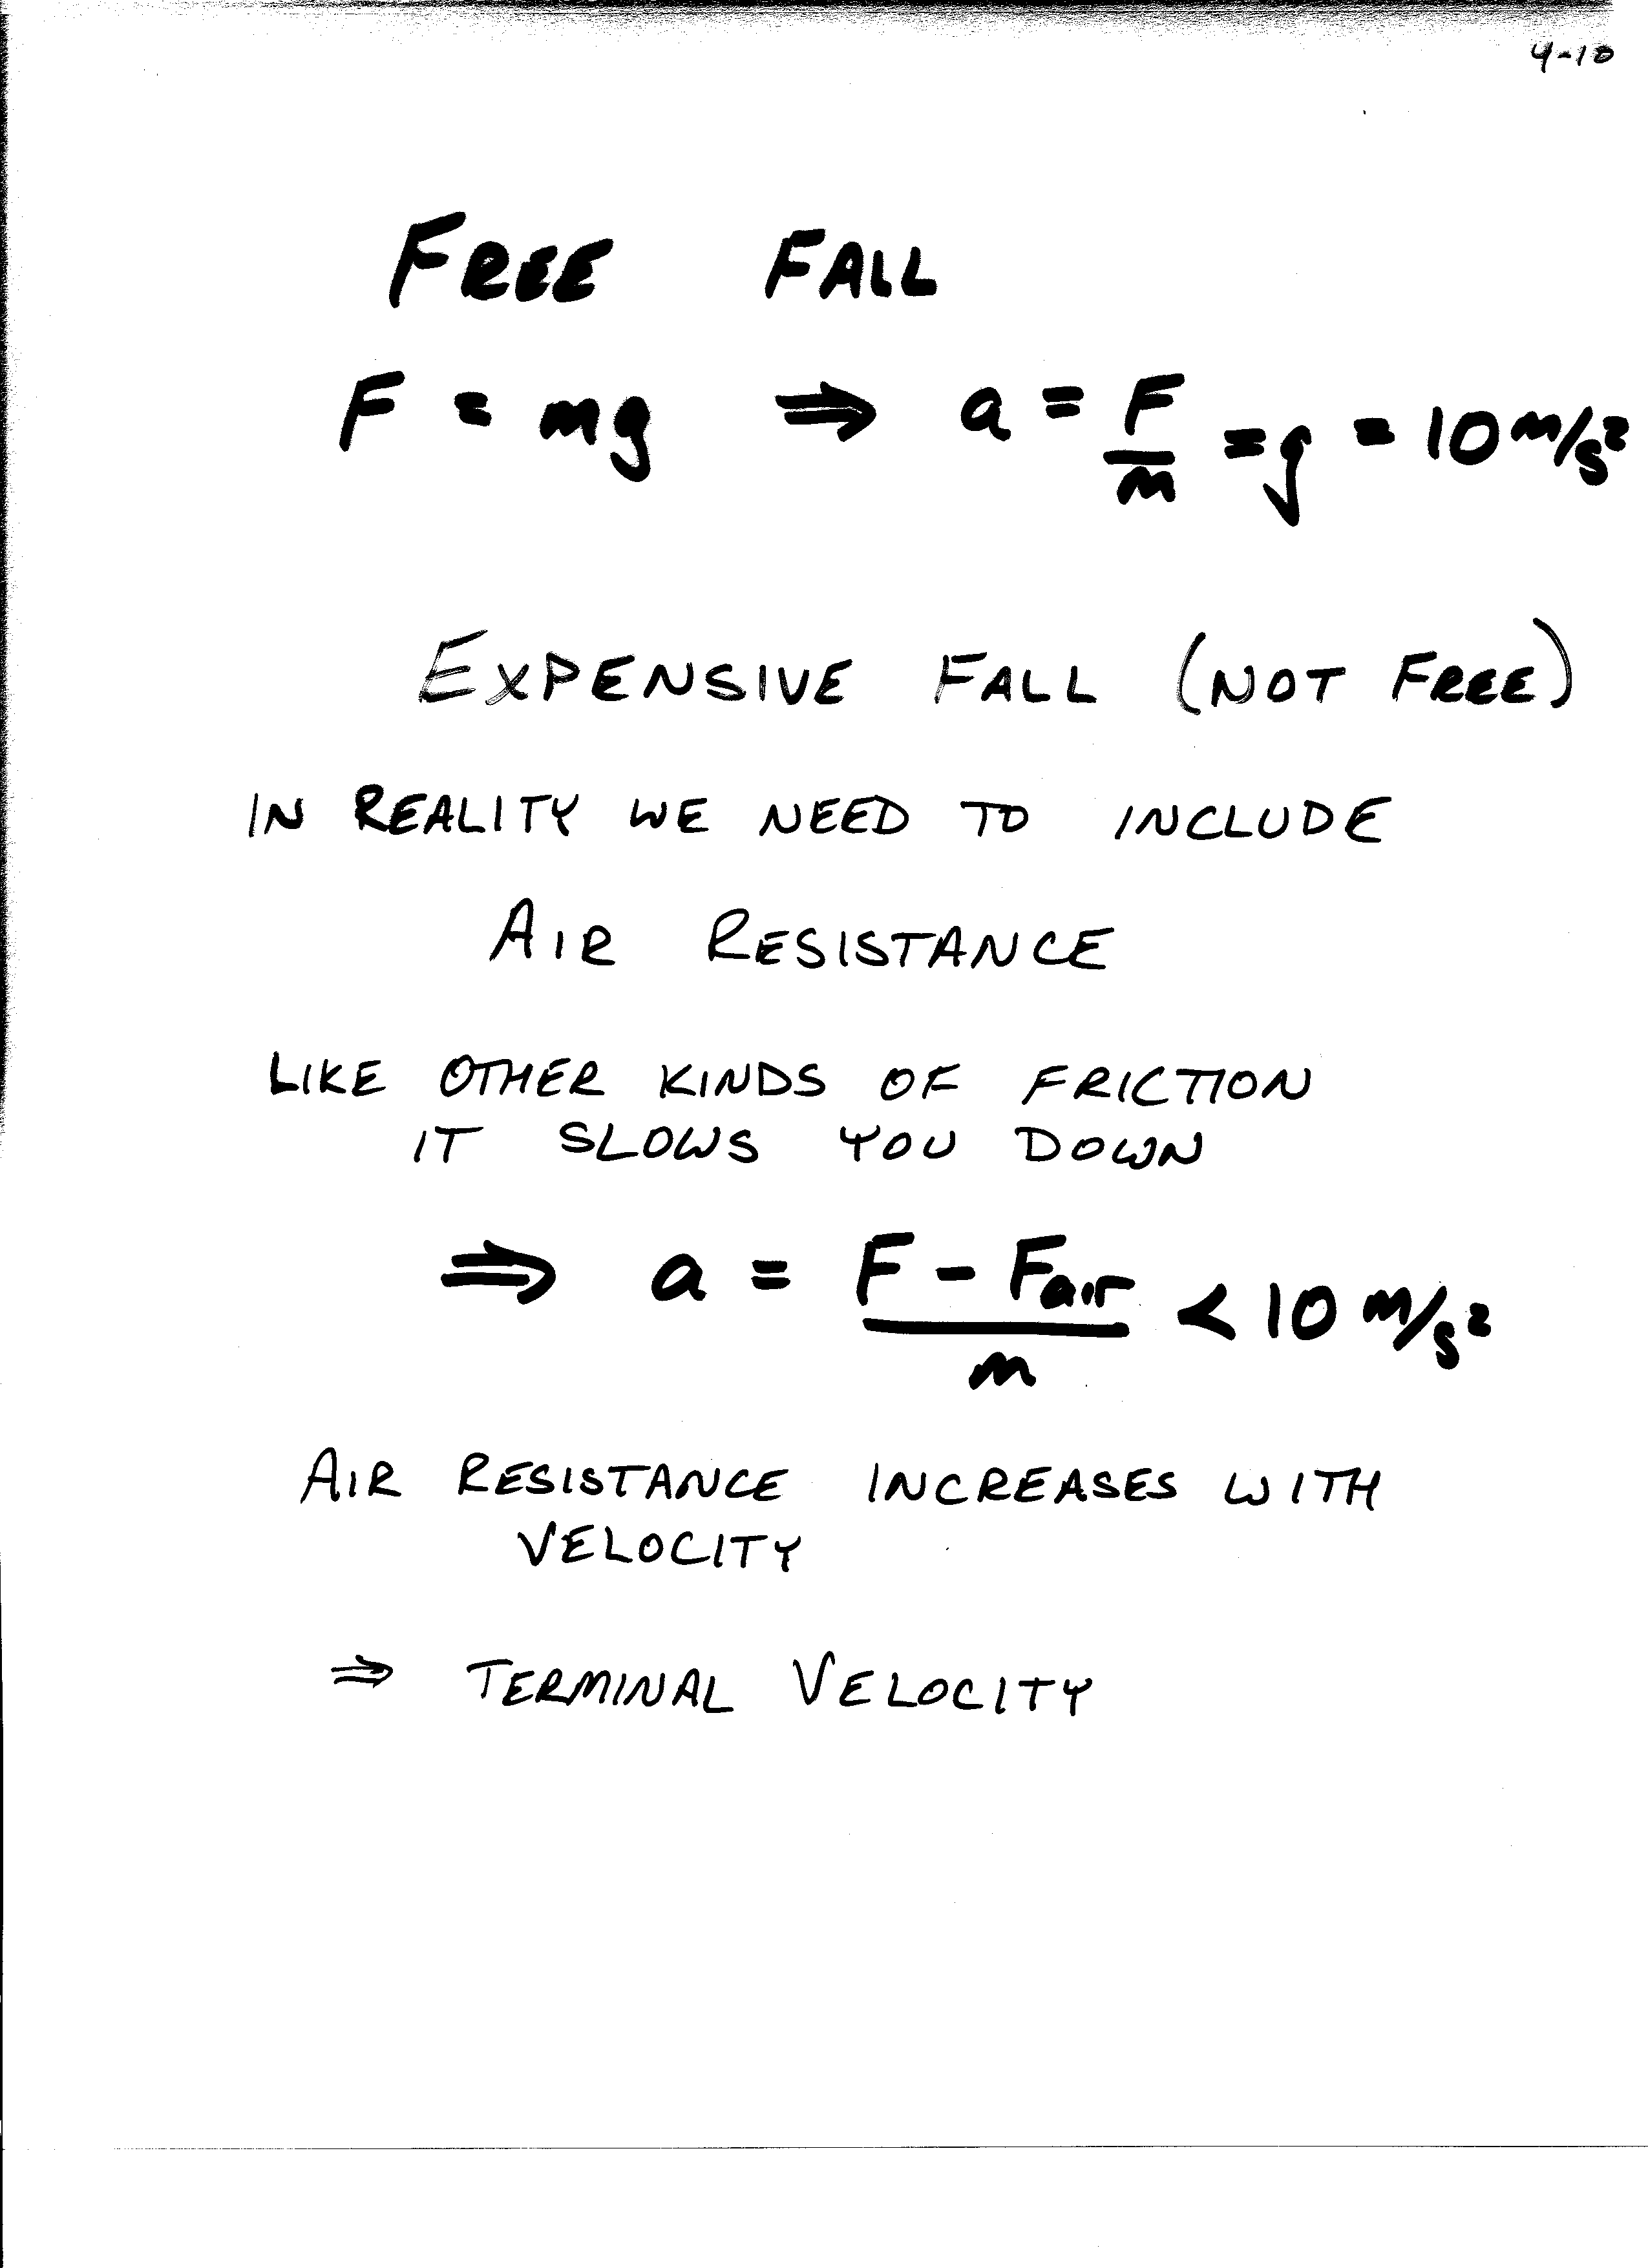 4-10
FREE FALL
F = mg ⇒ a = F/m = g = 10 m/s²
EXPENSIVE FALL (NOT FREE)
IN REALITY WE NEED TO INCLUDE
AIR RESISTANCE
LIKE OTHER KINDS OF FRICTION
IT SLOWS YOU DOWN
⇒ a = F - Fair / m < 10 m/s²
AIR RESISTANCE INCREASES WITH
VELOCITY
⇒ TERMINAL VELOCITY